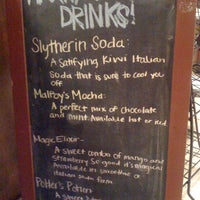 DRINKS!
Slytherin Soda:
A Satifying Kiwi Italian
Soda that is sure to cool you
off
Malfoy's Mocha:
A perfect mix of chocolate
and mint. Available hot or
Magic Elixir -
A sweet combo of mango and
strawberry so good it's magical
Available in smoothie or
italian soda form
Potter's Potion
A sweet